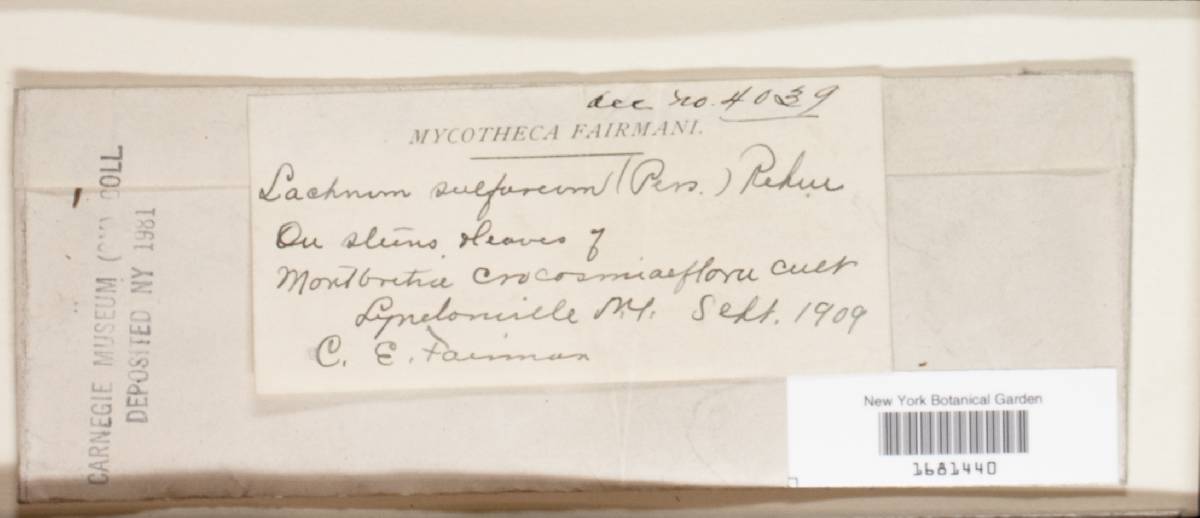 acc no. 4039
MYCOTHECA FAIRMANI.
Lachnum sulfureum (Pers.) Rehm
On stems & leaves of
Montbretia crocosmiaeflora cult
Lyndonville N.Y. Sept. 1909
C. E. Fairman
CARNEGIE MUSEUM (CM) COLL.
DEPOSITED NY 1981
New York Botanical Garden
1681440